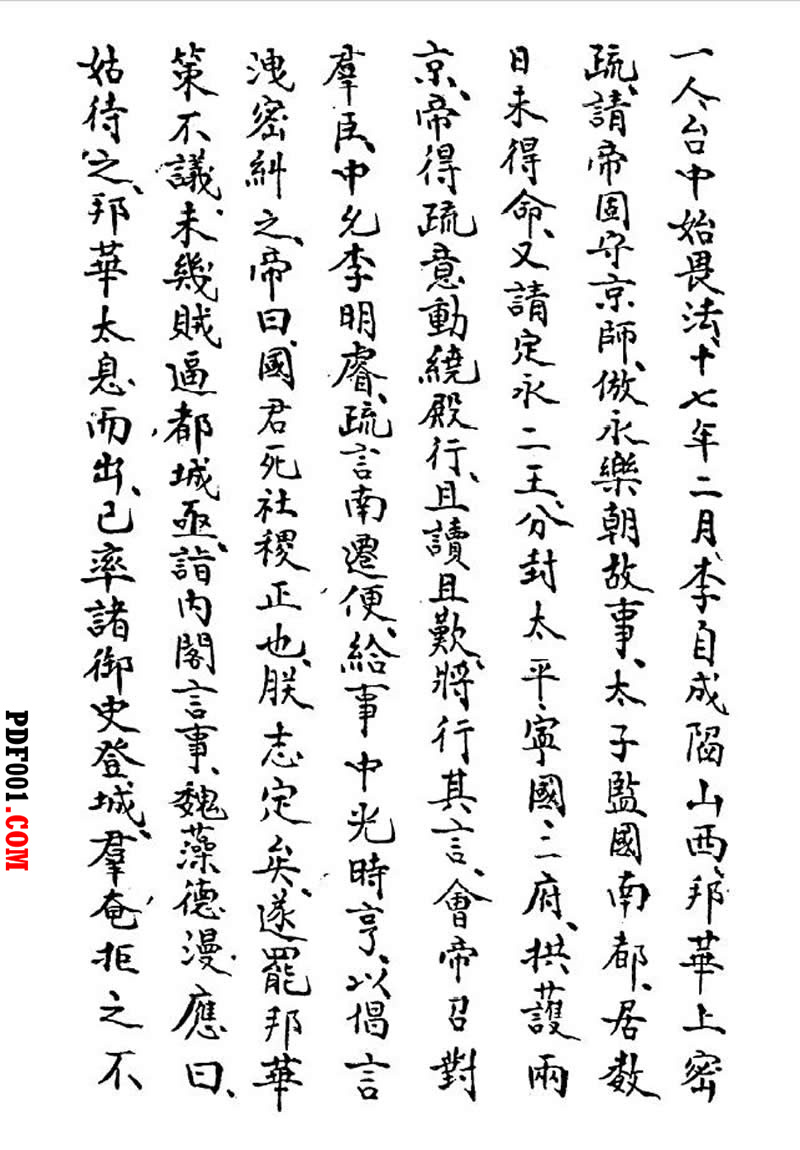 一人台中始畏法、十七年二月、李自成陷山西、邦華上密
疏、請帝固守京師、倣永樂朝故事、太子監國南都、居數
日未得命、又請定永二王、分封太平、寧國、二府、拱護兩
京、帝得疏意動繞殿行、且讀且歎、將行其言、會帝召對
羣臣、中允李明睿、疏言南遷便、給事中光時亨、以倡言
洩密糾之、帝曰、國君死社稷正也、朕志定矣、遂罷邦華
策不議、未幾賊逼都城、亟詣內閣言事、魏藻德漫應曰、
姑待之、邦華太息而出、已率諸御史登城、羣奄拒之不
PDF001.COM